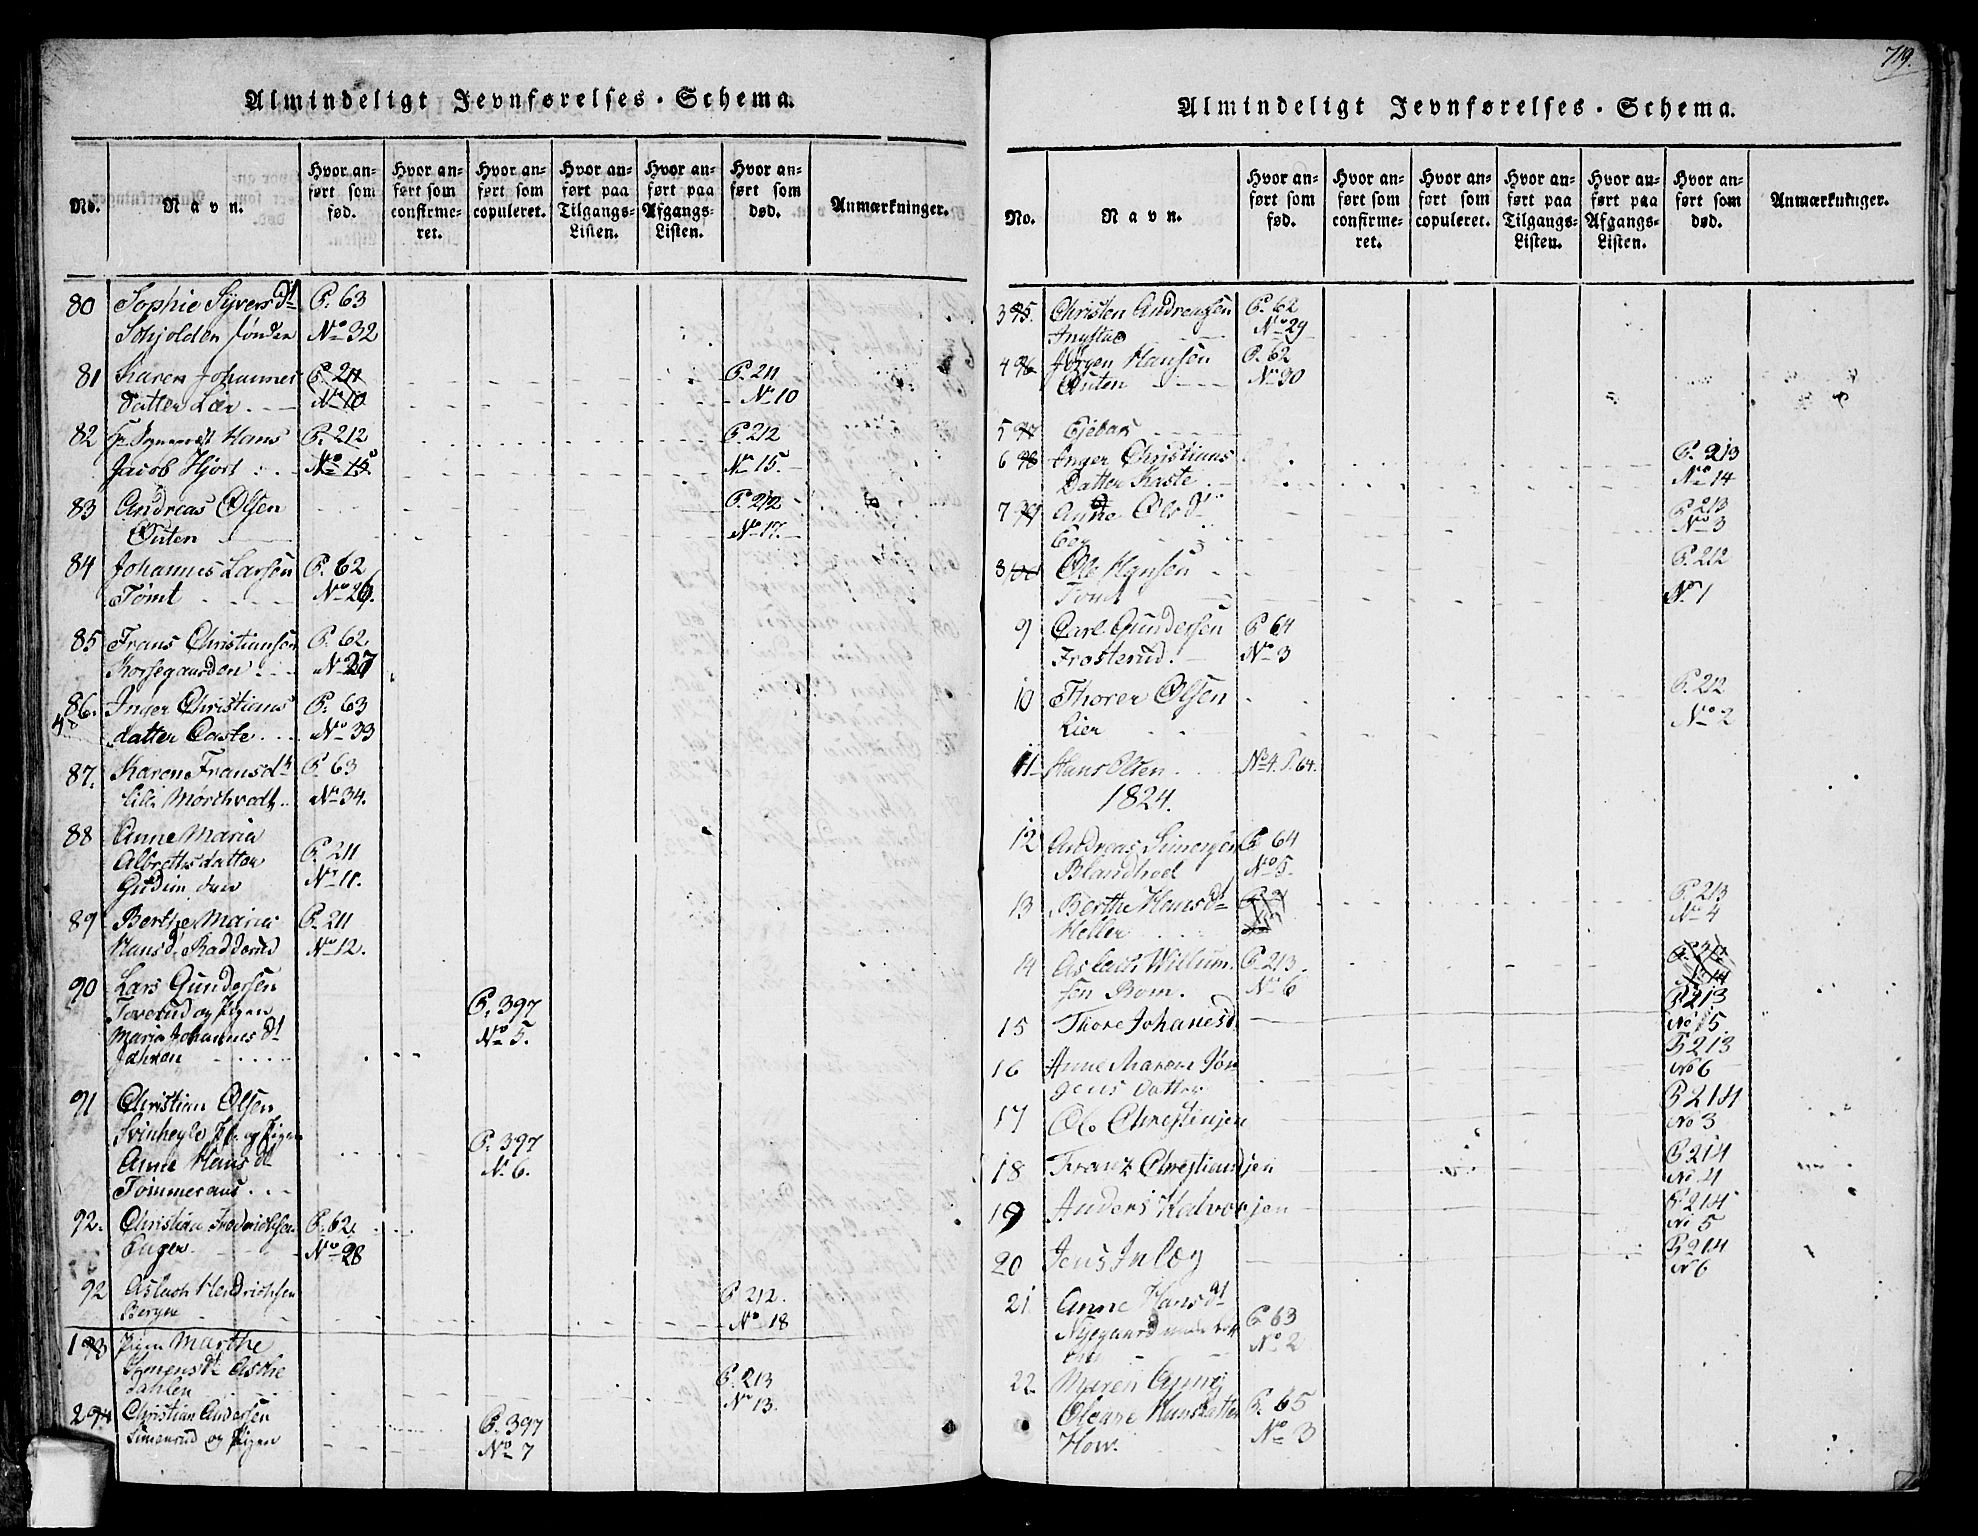 Almindeligt Jevnførelses-Schema.
No. Navn. Hvor anført som fød. Hvor anført som confirmeret. Hvor anført som copuleret. Hvor anført paa Tilgangs-Listen. Hvor anført paa Afgangs-Listen. Hvor anført som død. Anmærkninger.
80 Sophie Sÿvers dt P. 63
Schjolden No 32
81 Karen Johannes P. 211 P. 211
datter Lier No 10 No 10
82 Hans P. 212 P. 212
Jacob Hjort No 15 No 15
83 Andreas Olsen P. 212
Østen No 17
84 Johannes Larsen P. 62
Tomt No 26.
85 Frans Christiansen P. 62
Korsegaarden No 27
86. Inger Christians P. 63
datter Caste No 33
87. Karen Fransdt P. 63
Lille No 34.
88 Anne Maria
Albretsdatter P. 211
No 11.
89 Berthe Maria P. 211
Hansd. Radderud No 12.
90 Lars Gundersen
Toverud og Pigen P. 397
Maria Johannes dt No 5.
91 Christian Olsen
og Pigen P. 397
Anne Hans dt No 6.
Tømmeraas
92. Christian Frederichsen P. 62
Enger No 28
92 Aslach Hendrichsen P. 212.
Bergen No 18
1 93 Pigen Marthe
P. 213
Dahlen No 13.
2 94 Christian Andersen P. 397
Simensrud og Pigen No 7
719.
Almindeligt Jevnførelses-Schema.
No. Navn. Hvor anført som fød. Hvor anført som confirmeret. Hvor anført som copuleret. Hvor anført paa Tilgangs-Listen. Hvor anført paa Afgangs-Listen. Hvor anført som død. Anmærkninger.
3 95. Christen Andreasen P. 62
No 29
4 96 Jørgen Hansen P. 62
Østen No 30
5 97
6 98 Inger Christians P. 213
Datter Kaste No 14
7 99 Anne Ols dt P. 213
Eeg No 3
8 100 Ole Hansen P. 212
Tomt No 1
9 Carl Gundersen P 64
Frosterud No 3
10 Thorer Olsen P. 212
Lier No 2
11 Hans Olsen No 4. P. 64.
1824.
12 Andreas Simensen P 64
Blandhoel No 5.
13 Berthe Hansdt P. 213
Heller No 4
14 Aslach Willum P. 213.
sen Rom. No 6
15 Thore Johanesd P 213
No 5.
16 Anne Maren Jør P 213
gens datter No 6
17 Ole Christinsen P 214
No 3
18 Franz Christiansen P 214
No 4
19 Anders Halvorsen P 214
No 5
20 Jens P 214
No 6
21 Anne Hansdt P 63
Nÿegaard No 2
22. Maren
Oleane Hansdatter P. 65
How No 3